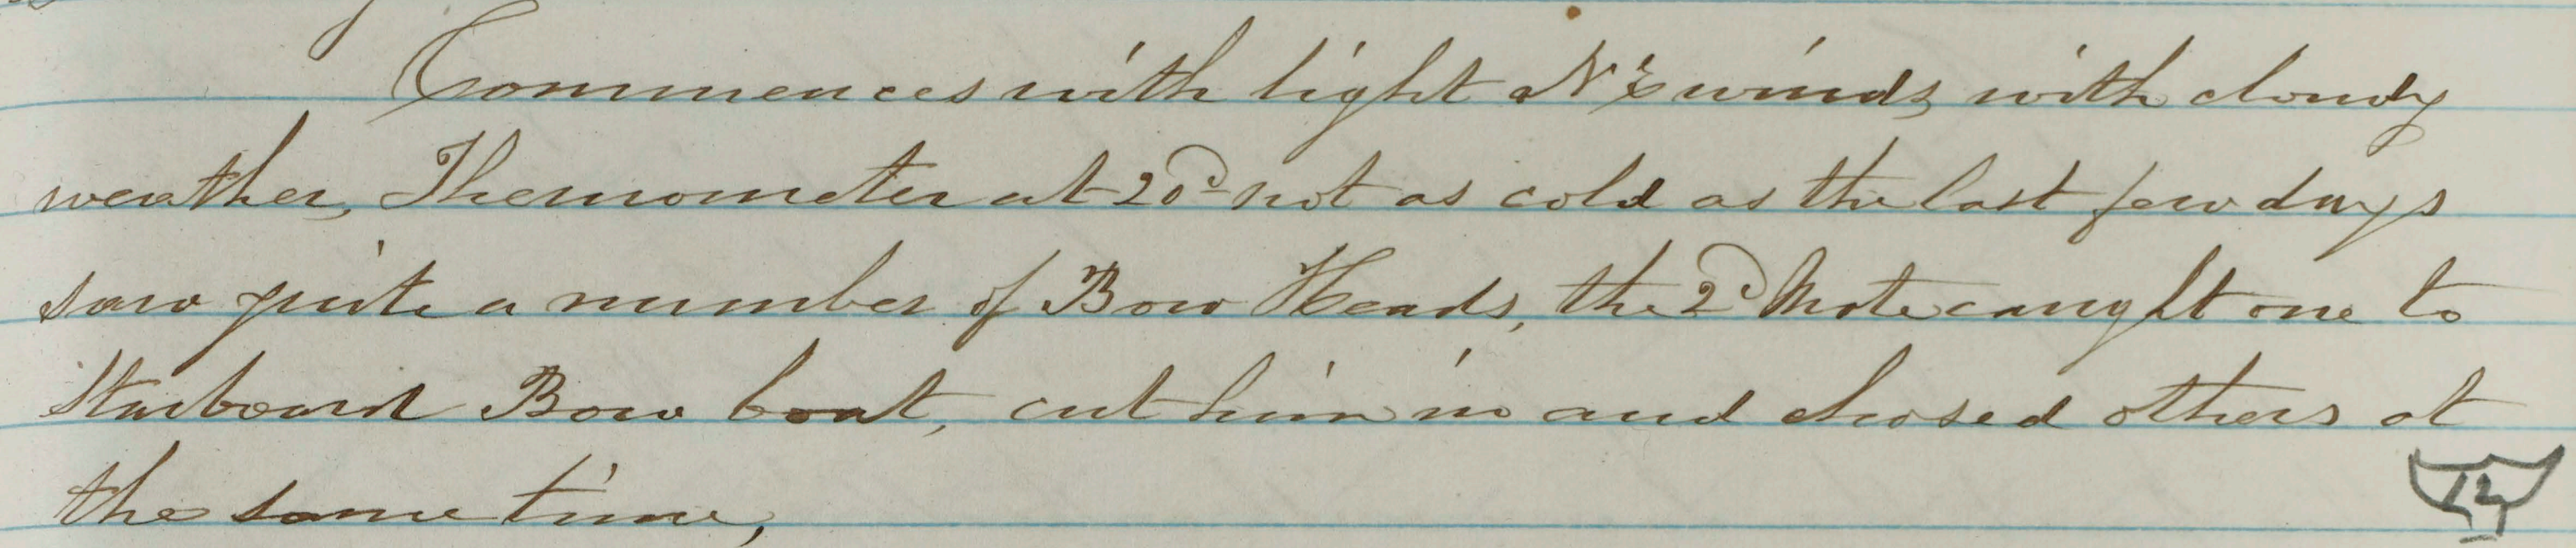 Commences with light N E winds, with cloudy
weather, Thermometer at 20° not as cold as the last few days
saw quite a number of Bow Heads, the 2d Mate caught one to
Starboard Bow boat, cut him in and chased others at
the same time,